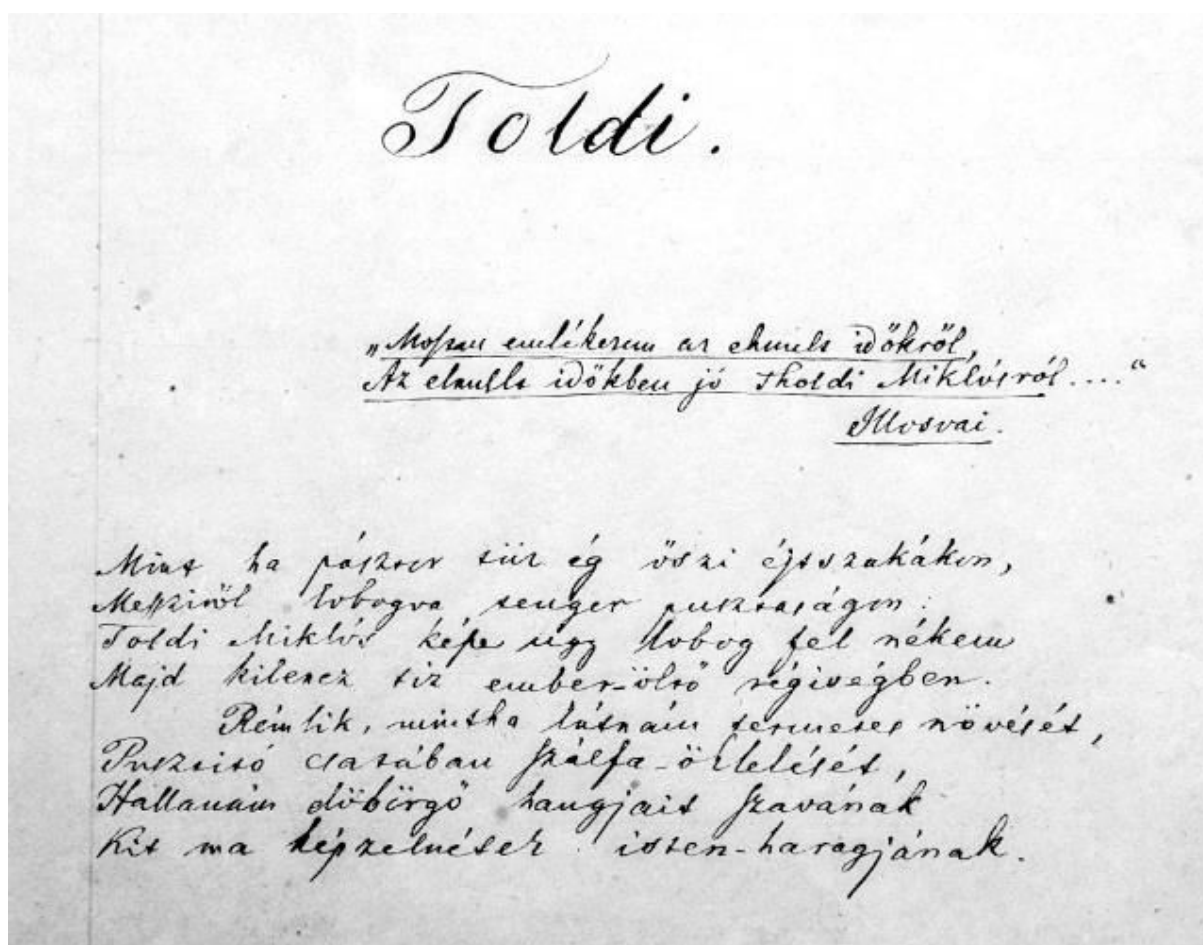 Toldi.
„Mostan emlékezem az elmúlt időkről,
Az elmúlt időkben jó Tholdi Miklósról...."
Ilosvai.
Mint ha pásztor tűz ég őszi éjszakákon,
Messziről lobogva tenger pusztaságon:
Toldi Miklós képe úgy lobog fel nékem
Majd kilencz tíz ember-öltő régiségben.
Rémlik, mintha látnám termetes növését,
Pusztitó csatában szálfa-öklelését,
Hallanám döbörgő hangjait szavának
Kit ma képzelnétek isten-haragjának.